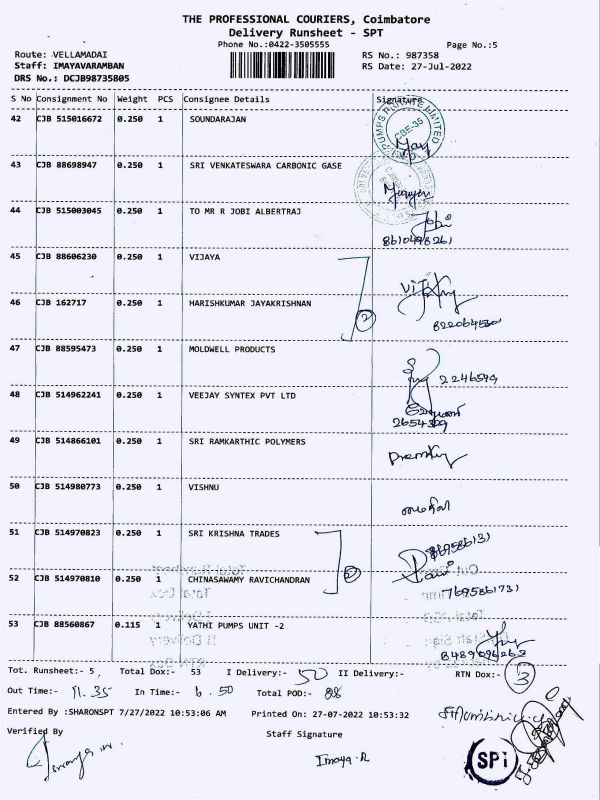 THE PROFESSIONAL COURIERS, Coimbatore
Delivery Runsheet - SPT
Phone No.:0422-3505555
Page No.:5
Route: VELLAMADAI
RS No.: 987358
Staff: IMAYAVARAMBAN
RS Date: 27-Jul-2022
DRS No.: DCJB98735805
S No Consignment No Weight PCS Consignee Details Signature
42 CJB 515016672 0.250 1 SOUNDARAJAN
PUMPS PRIVATE LIMITED
CBE-35
43 CJB 88698947 0.250 1 SRI VENKATESWARA CARBONIC GASE
44 CJB 515003045 0.250 1 TO MR R JOBI ALBERTRAJ
Jobi
8610498261
45 CJB 88606230 0.250 1 VIJAYA
46 CJB 162717 0.250 1 HARISHKUMAR JAYAKRISHNAN
2
47 CJB 88595473 0.250 1 MOLDWELL PRODUCTS
2246599
48 CJB 514962241 0.250 1 VEEJAY SYNTEX PVT LTD
49 CJB 514866101 0.250 1 SRI RAMKARTHIC POLYMERS
50 CJB 514980773 0.250 1 VISHNU
51 CJB 514970823 0.250 1 SRI KRISHNA TRADES
52 CJB 514970810 0.250 1 CHINASAWAMY RAVICHANDRAN
53 CJB 88560867 0.115 1 YATHI PUMPS UNIT -2
8489096263
Tot. Runsheet:- 5, Total Dox:- 53 I Delivery:- 50 II Delivery:- RTN Dox:- 3
Out Time:- 11.35 In Time:- 6.50 Total POD:- 88
Entered By :SHARONSPT 7/27/2022 10:53:06 AM Printed On: 27-07-2022 10:53:32
Verified By
Staff Signature
Imaya.R
SPi